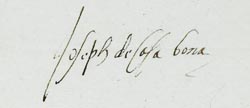 Joseph de Casa bona